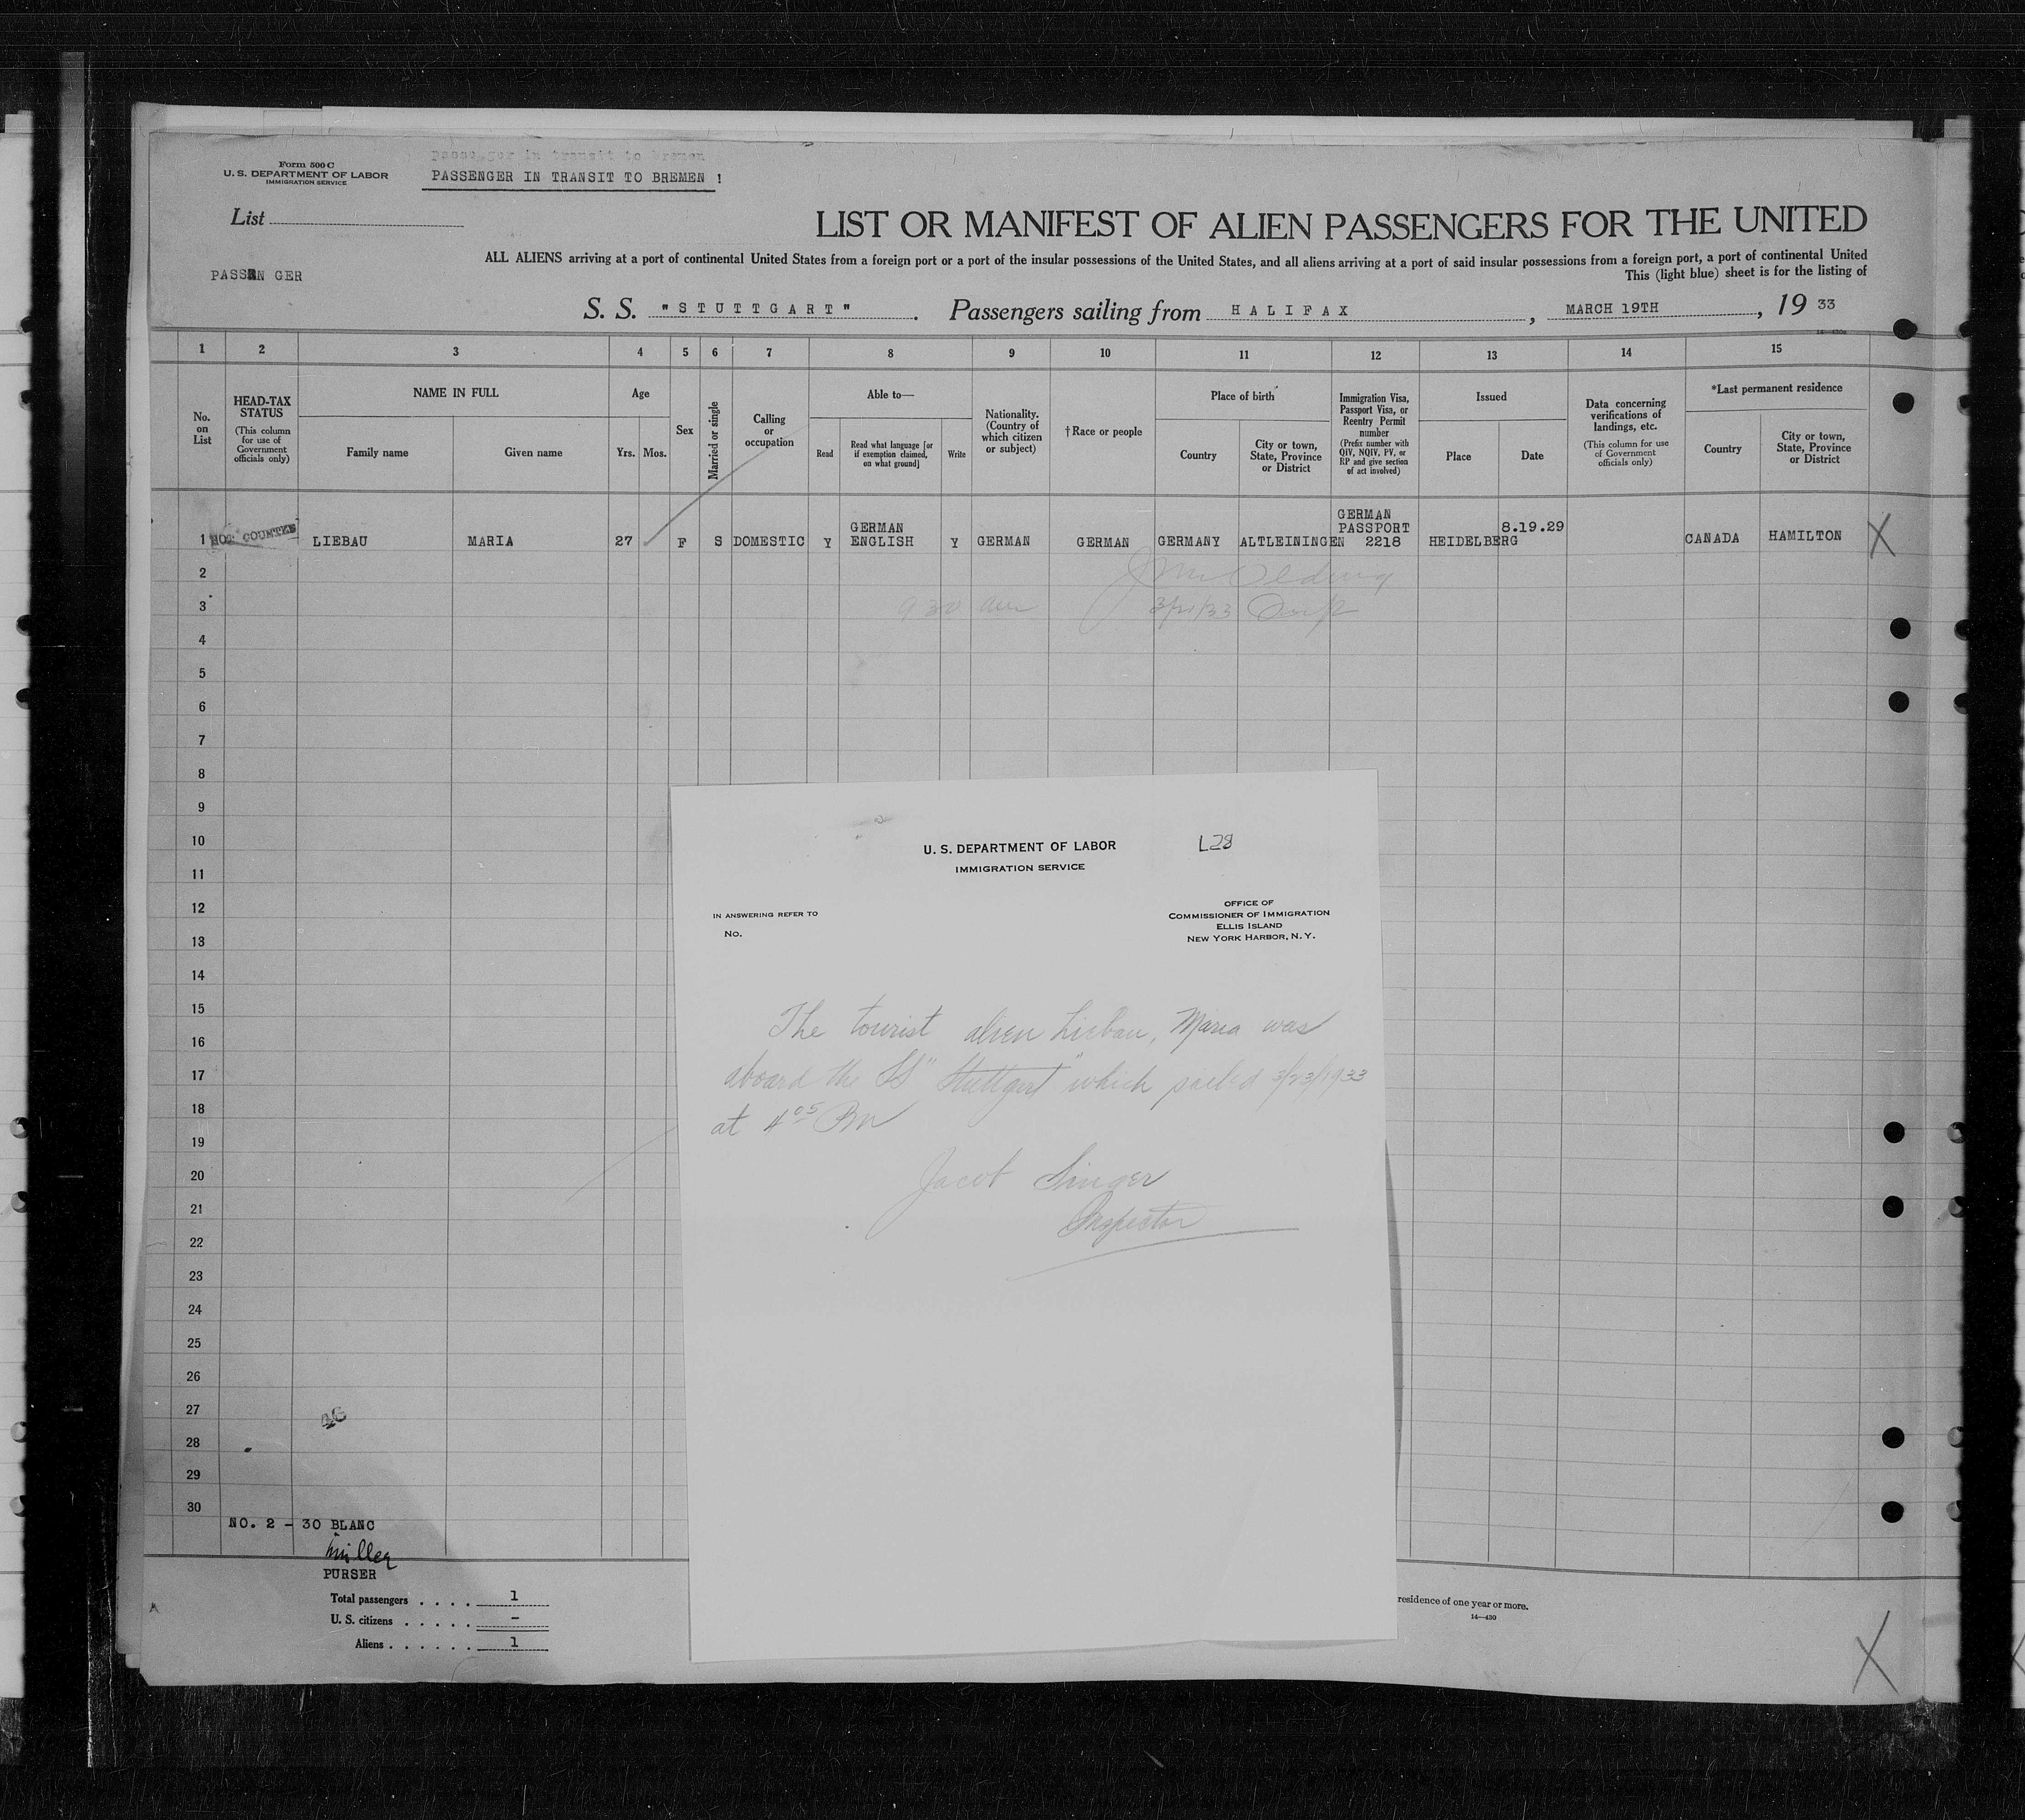 Form 500 C
U. S. DEPARTMENT OF LABOR
IMMIGRATION SERVICE
Passenger in transit to Bremen
PASSENGER IN TRANSIT TO BREMEN !
List
LIST OR MANIFEST OF ALIEN PASSENGERS FOR THE UNITED
ALL ALIENS arriving at a port of continental United States from a foreign port or a port of the insular possessions of the United States, and all aliens arriving at a port of said insular possessions from a foreign port, a port of continental United
This (light blue) sheet is for the listing of
PASSEN GER
S. S. "STUTTGART". Passengers sailing from HALIFAX, MARCH 19TH, 19 33
1 2 3 4 5 6 7 8 9 10 11 12 13 14 15
No. on List
HEAD-TAX STATUS (This column for use of Government officials only)
NAME IN FULL
Family name
Given name
Age
Yrs. Mos.
Sex
Married or single
Calling or occupation
Able to—
Read
Read what language [or if exemption claimed, on what ground]
Write
Nationality. (Country of which citizen or subject)
†Race or people
Place of birth
Country
City or town, State, Province or District
Immigration Visa, Passport Visa, or Reentry Permit number (Prefix number with QIV, NQIV, PV, or RP and give section of act involved)
Issued
Place
Date
Data concerning verifications of landings, etc. (This column for use of Government officials only)
*Last permanent residence
Country
City or town, State, Province or District
GERMAN
GERMAN PASSPORT 8.19.29
1 NOT COUNTED LIEBAU MARIA 27 F S DOMESTIC Y ENGLISH Y GERMAN GERMAN GERMANY ALTLEININGEN 2218 HEIDELBERG CANADA HAMILTON X
2
3 9 30 am 3/21/33
4
5
6
7
8
9
10
11
12
13
14
15
16
17
18
19
20
21
22
23
24
25
26
27
46
28
29
30
NO. 2 - 30 BLANC
Müller
PURSER
Total passengers . . . . 1
U. S. citizens . . . . . -
Aliens . . . . . . 1
U. S. DEPARTMENT OF LABOR
IMMIGRATION SERVICE
L28
IN ANSWERING REFER TO
No.
OFFICE OF
COMMISSIONER OF IMMIGRATION
ELLIS ISLAND
NEW YORK HARBOR, N. Y.
The tourist alien Liebau, Maria was
aboard the SS "Stuttgart" which sailed 3/23/1933
at 4 05 PM
Jacob Singer
Inspector
residence of one year or more.
14—430
X